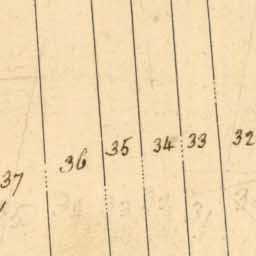 37 36 35 34 33 32